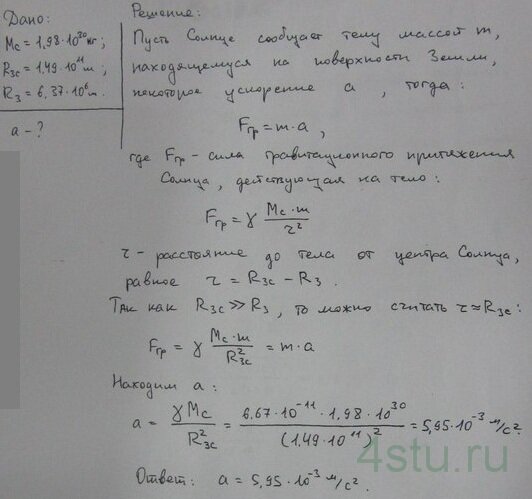 Дано:
Mc = 1,98·10³⁰ кг;
Rзс = 1,49·10¹¹ м;
Rз = 6,37·10⁶ м.
a - ?
Решение:
Пусть Солнце сообщает телу массой m,
находящемуся на поверхности Земли,
некоторое ускорение a, тогда:
Fгр = m·a,
где Fгр - сила гравитационного притяжения
Солнца, действующая на тело:
Fгр = γ Mc·m / r²
r - расстояние до тела от центра Солнца,
равное r = Rзс - Rз.
Так как Rзс ≫ Rз, то можно считать r ≈ Rзс:
Fгр = γ Mc·m / R²зс = m·a
Находим a:
a = γMc / R²зс = 6,67·10⁻¹¹·1,98·10³⁰ / (1,49·10¹¹)² = 5,95·10⁻³ м/с².
4stu.ru
Ответ: a = 5,95·10⁻³ м/с².